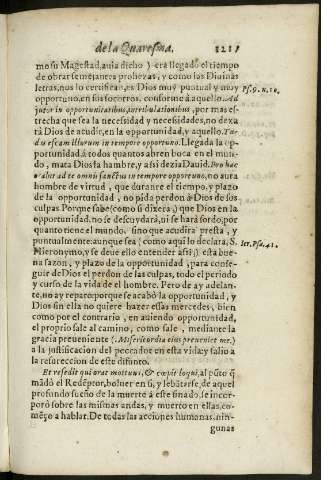 de la Quaresma. 121
mo su Magestad, auia dicho) era llegado el tiempo
de obrar semejantes prohezas, y como las Diuinas
letras, nos lo certifican, es Dios muy puntual y muy
opportuno, en sus socorros, conforme à aquello. Ad
Ps. 9. n. 10.
jutor in opportunitatibus, in tribulationibus, por mas es
trecha que sea la necessidad y necessidades, no dexa
rà Dios de acudir, en la opportunidad, y aquello. Tu
das escam illorum in tempore opportuno. Llegada la op
portunidad, à todos quantos abren boca en el mun
do, mata Dios la hambre, y assi dezia Dauid. Pro hac
orabit ad te omnis sanctus in tempore opportuno, no aura
hombre de virtud, que durante el tiempo, y plazo
de la opportunidad, no pida perdon à Dios de sus
culpas Porque sabe (como si dixera) que Dios en la
opportunidad, no se descuydarà, ni se harà sordo, por
quanto tiene el mundo, sino que acudira presta, y
puntualmente: aunque sea (como aqui lo declara, S.
Ier. Psa. 41.
Hieronymo, y se deue ello entender assi) està bue
na sazon, y plazo de la opportunidad, para conse-
guir de Dios el perdon de las culpas, todo el periodo
y curso de la vida de el hombre. Pero de ay adelan-
te, no ay reparo: porque se acabò la opportunidad, y
Dios sin ella no quiere hazer essas mercedes, bien
como por el contrario, en auiendo opportunidad,
el proprio sale al camino, como sale, mediante la
gracia preueniente (Misericordia eius preueniet me.)
a la justificacion del peccador en esta vida: y salio a
la resureccion de este difunto.
Et resedit qui erat mortuus, & cœpit loqui, al pūto q̄
mādò el Redēptor, boluer en si, y lebātarse, de aquel
profundo sueño de la muerte à este finado, se incor-
porò sobre las mismas andas, y muerto en ellas, co-
mēço a hablar. De todas las acciones humanas, nin-
gunas